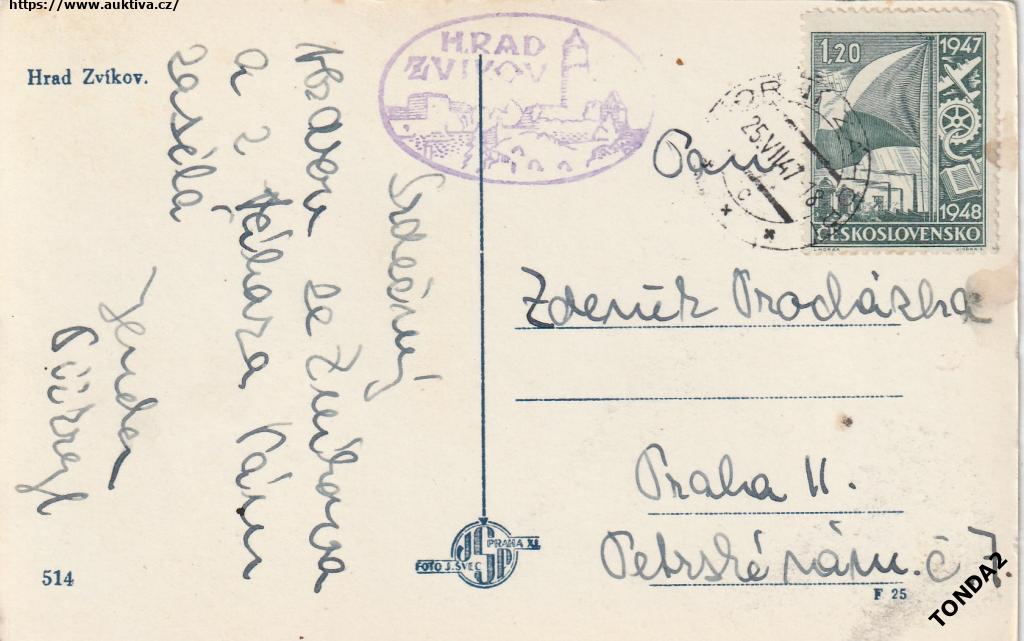 https://www.auktiva.cz/
Hrad Zvíkov.
HRAD
ZVIKOV
Srdečný
pozdrav ze Zvíkova
a z Tábora Vám
zasílá
Jenda
1,20
1947
1948
ČESKOSLOVENSKO
25.VII.47.18
C
Panu
Zdeněk Procházka
Praha II.
Petrské nám. č 7.
FOTO J. ŠVEC
JSP
PRAHA XI.
514
F 25
TONDA2